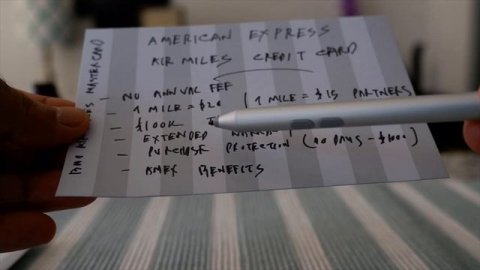 AMERICAN EXPRESS
AIR MILES CREDIT CARD
- NO ANNUAL FEE
- 1 MILE = $20 ( 1 MILE = $15 PARTNERS
- $100K
- EXTENDED
PURCHASE PROTECTION (90 DAYS - $1000)
- AMEX BENEFITS
MASTERCARD